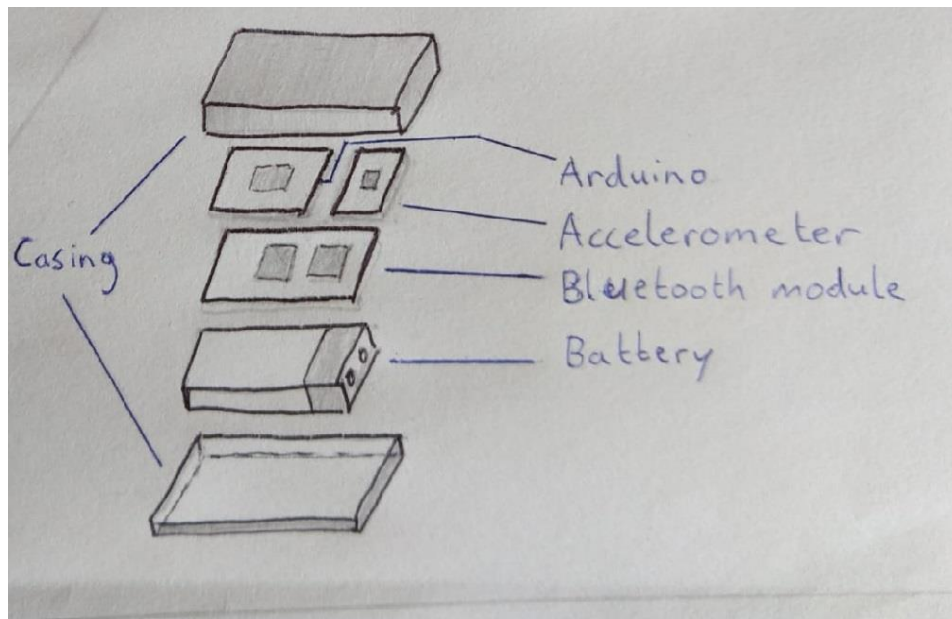 Casing
Arduino
Accelerometer
Bluetooth module
Battery